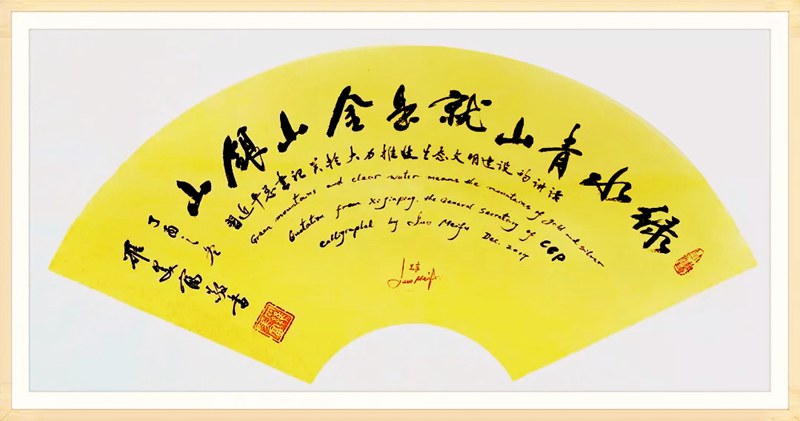 绿水青山就是金山银山
習近平总書記关於大力推進生态文明建设的讲话
Green mountains and clear water means the mountains of gold and silver
Quotation from Xi Jinping, the General secretary of CCP
Calligraphed by Luo Meifu Dec. 2017
丁酉之冬
美富敬書
Luo Meifu